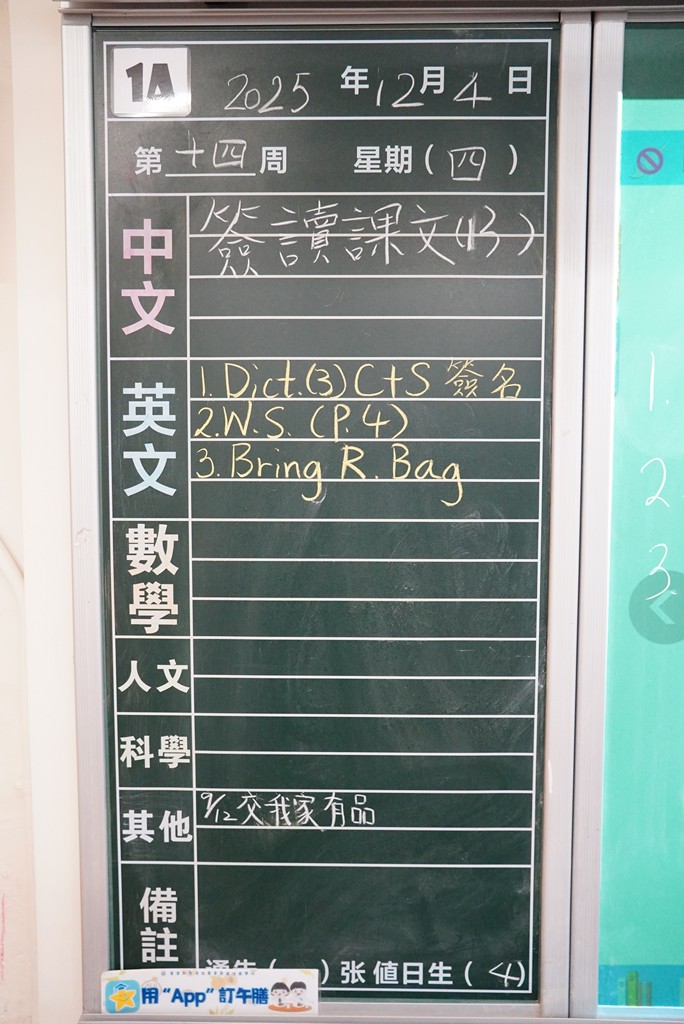 1A 2025 年 12 月 4 日
第 十四 周 星期 ( 四 )
中文
簽讀課文(13)
英文
1. Dict.(3) C+S 簽名
2. W.S. (P.4)
3. Bring R. Bag
數學
人文
科學
其他
9/12交我家有品
備註
通告 ( ) 张 值日生 ( 4 )
用“App”訂午膳
1.
2
3